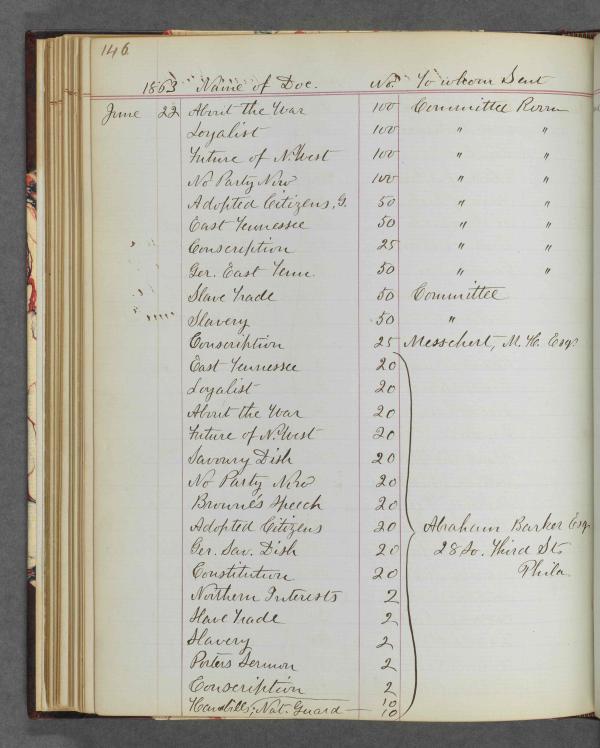 146
1863 Name of Doc. No. To whom Sent
June 22 About the War 100 Committee Room
Loyalist 100 " "
Future of N. West 100 " "
No Party Now 100 " "
Adopted Citizens, G. 50 " "
East Tennessee 50 " "
Conscription 25 " "
Ger. East Tenn. 50 " "
Slave Trade 50 Committee
Slavery 50 "
Conscription 25 Messchert, M. H. Esq.
East Tennessee 20
Loyalist 20
About the War 20
Future of N. West 20
Savoury Dish 20
No Party Now 20
Browne's Speech 20
Adopted Citizens 20 Abraham Barker Esq
Ger. Sav. Dish 20 28 So. Third St.
Constitution 20 Phila
Northern Interests 2
Slave Trade 2
Slavery 2
Porters Sermon 2
Conscription 2
Handbills, Nat. Guard — 10
10